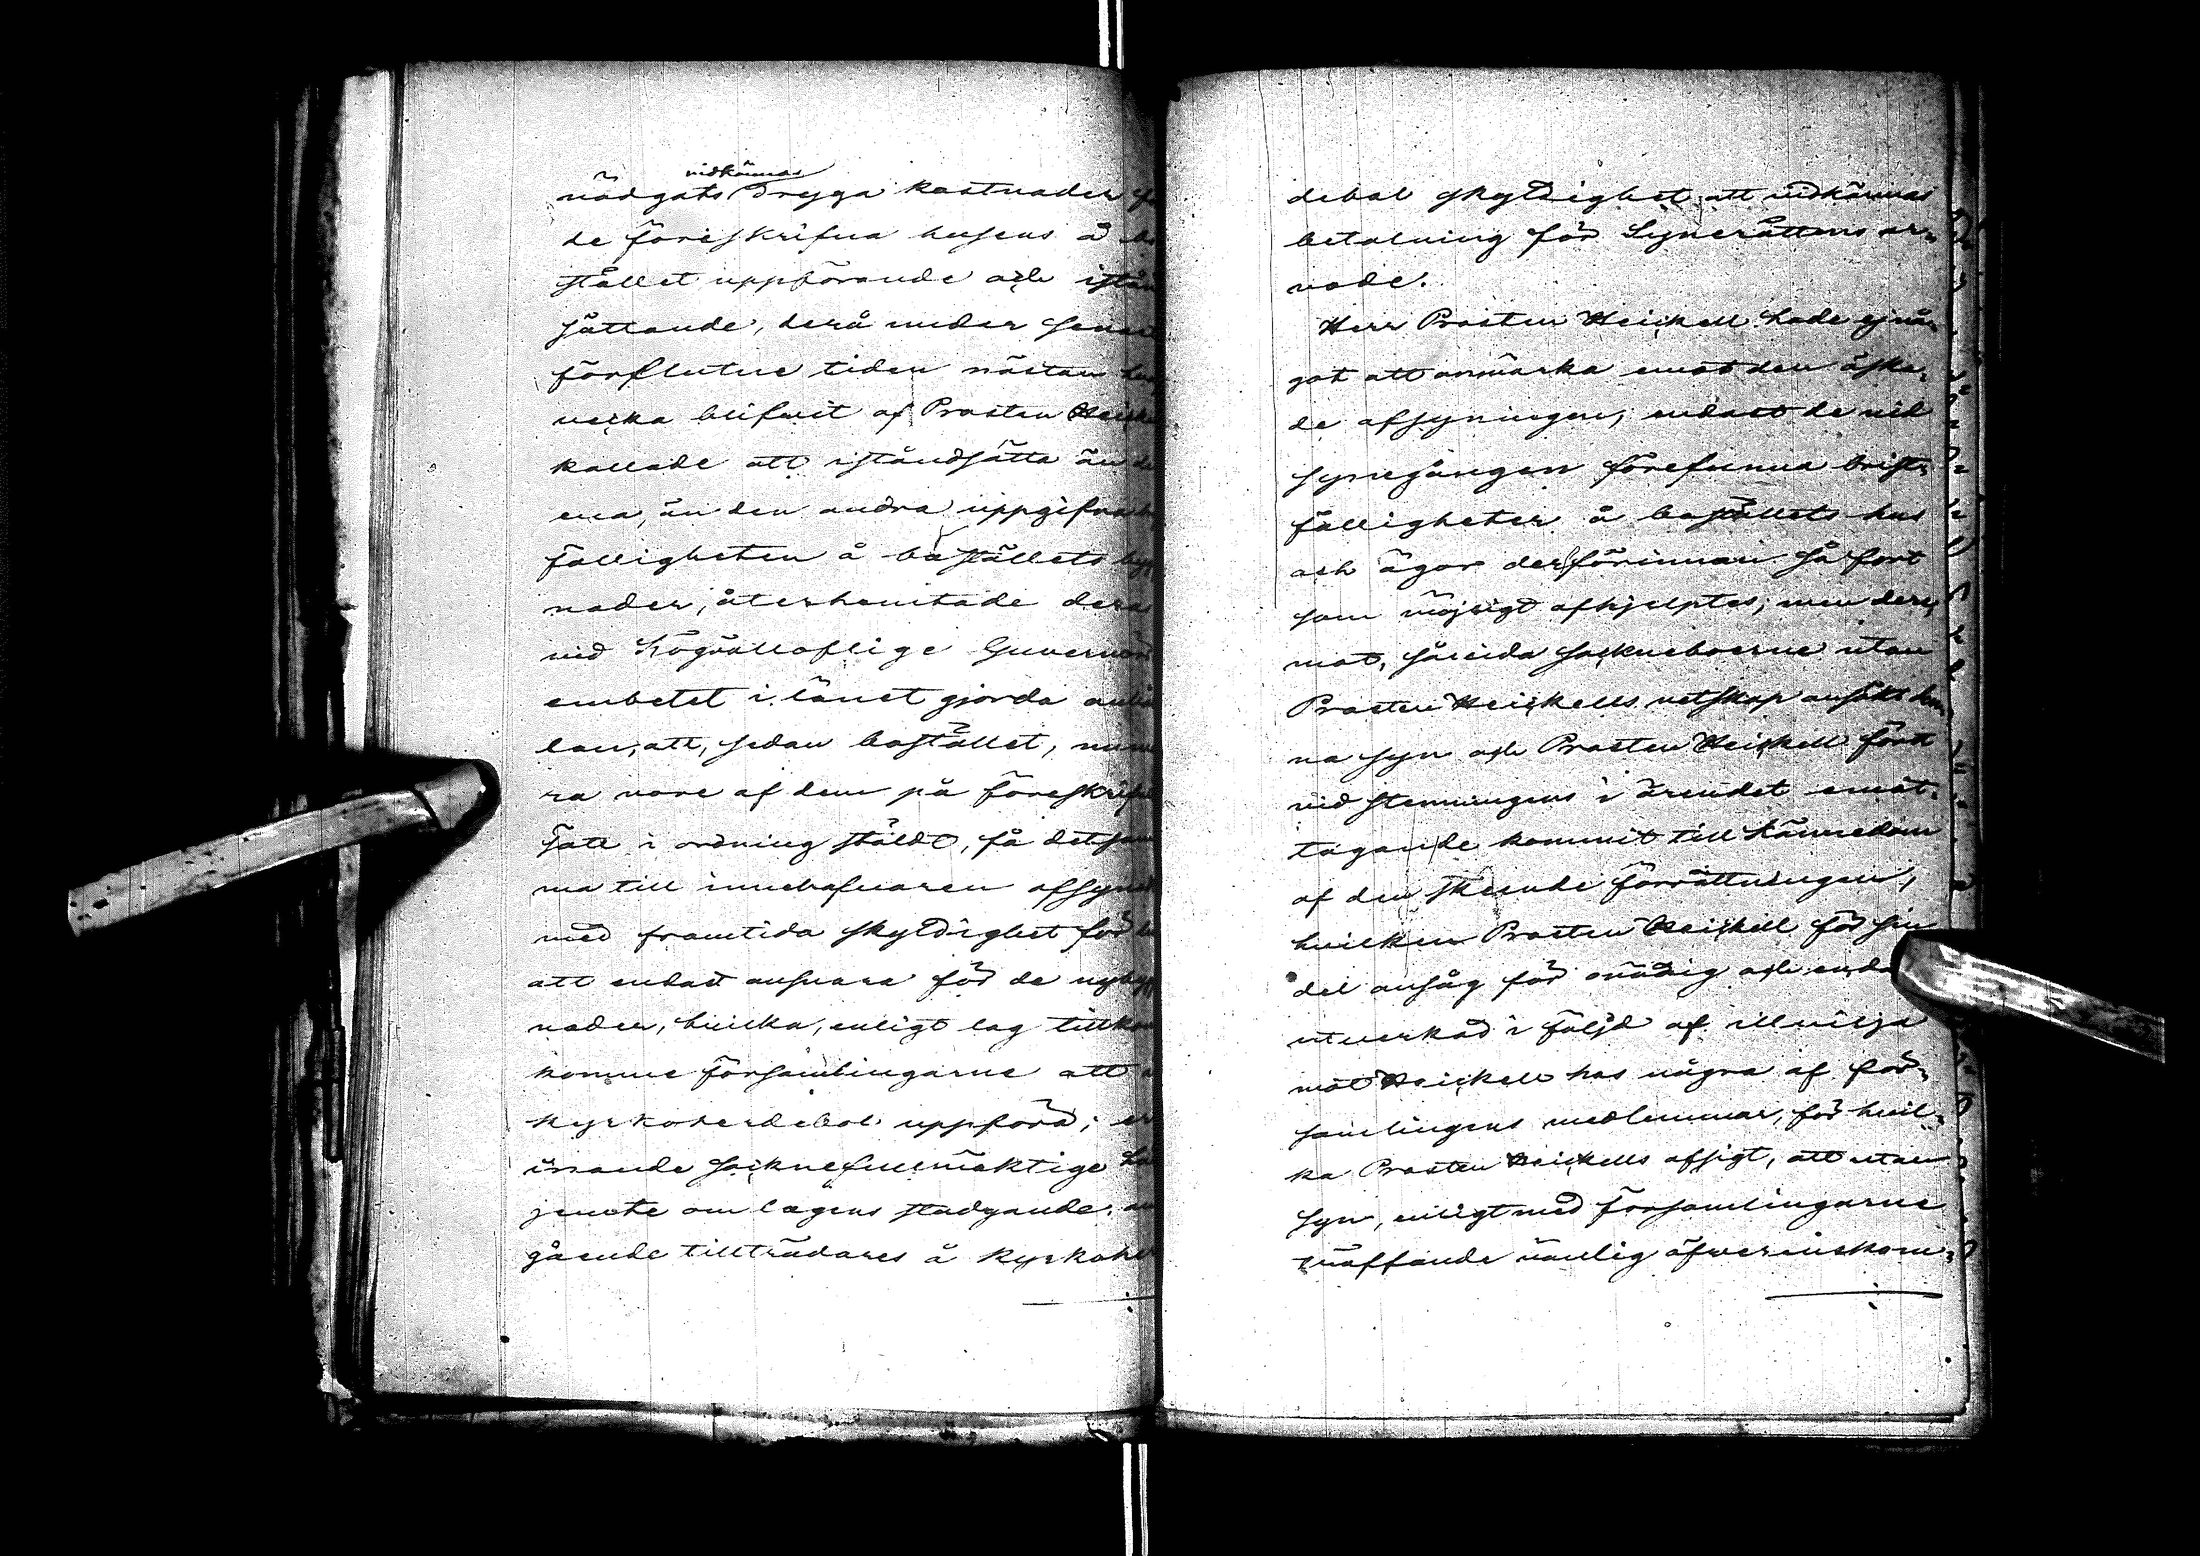 vidkännas
nödgats dryga kostnader
de föreskrifna husens å
stället uppförande och
sättande, derå under
förflutne tiden nästan
verka blifvit af Prosten
kallade att iståndsätta än
ena, än den andra uppgifna
fälligheten å boställets
nader, återhemtade dera
vid Högvälloflige Guvernörs
embetet i länet gjorda
lan, att, sedan bostället,
ra vore af dem på föreskrifvet
sätt i ordning stäldt, få det
ma till innehafvaren afsynadt
med framtida skyldighet för
att endast ansvara för de nybygg
nader, hvilka, enligt lag
komme församlingarne att
kyrkoherdebol uppföra;
inrande socknefullmäktige
jemte om lagens stadgande,
gående tillträdares å kyrkoher
debol skyldighet att vidkännas
betalning för Synerättens ar-
vode.
Herr Prosten Heickell hade ej nå-
got att anmärka emot den äska-
de afsyningen, endast de vid
synegången förefunna brist-
fälligheter å boställets hus
och ägor derförinnan så fort
som möjligt afhjelptes; men der-
mot, såvida sockneboerne utan
Prosten Heickells vetskap ansökt den-
na syn och Prosten Heickell först
vid stemningens i ärendet emot-
tagande kommit till kännedom
af den skeende förrättningen,
hvilken Prosten Heickell för sin
del ansåg för onödig och
utverkad i följd af illvilja
mot Heickell hos några af för-
samlingens medlemmar, för hvil-
ka Prosten Heickells afsigt, att utan
syn, enligt med församlingarne
träffande vänlig öfverenskom-